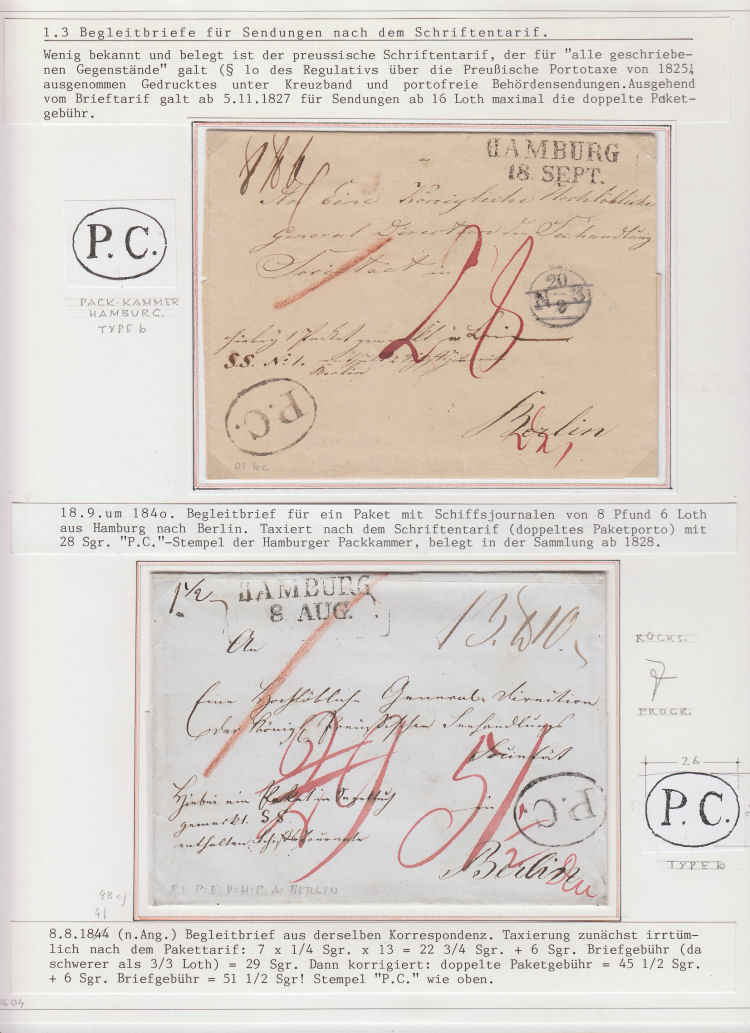 1.3 Begleitbriefe für Sendungen nach dem Schriftentarif.
Wenig bekannt und belegt ist der preussische Schriftentarif, der für "alle geschriebe-
nen Gegenstände" galt (§ 1o des Regulativs über die Preußische Portotaxe von 1825,
ausgenommen Gedrucktes unter Kreuzband und portofreie Behördensendungen.Ausgehend
vom Brieftarif galt ab 5.11.1827 für Sendungen ab 16 Loth maximal die doppelte Paket-
gebühr.
HAMBURG
18. SEPT.
An Eine Königliche Hochlöbliche
General Direction der Seehandlung
Societaet in
P.C.
PACK-KAMMER
HAMBURG.
TYPE b
20
N 3
9
28
hiebey 1 Packet
S.S. No 1.
Berlin
P.C.
Berlin
01 bc
18.9.um 184o. Begleitbrief für ein Paket mit Schiffsjournalen von 8 Pfund 6 Loth
aus Hamburg nach Berlin. Taxiert nach dem Schriftentarif (doppeltes Paketporto) mit
28 Sgr. "P.C."-Stempel der Hamburger Packkammer, belegt in der Sammlung ab 1828.
1 1/2
HAMBURG
8 AUG.
An
Eine Hochlöbliche General-Direction
der Königl. Preußischen Seehandlungs
Societät
29
51
Hiebei ein Paket in Segeltuch
gemerkt. S S.
enthaltend Schiffs Journale
in
P.C.
Berlin
RÜCKS.
7
PROGR.
26
P.C.
TYPE b
98 cj
41
8.8.1844 (n.Ang.) Begleitbrief aus derselben Korrespondenz. Taxierung zunächst irrtüm-
lich nach dem Pakettarif: 7 x 1/4 Sgr. x 13 = 22 3/4 Sgr. + 6 Sgr. Briefgebühr (da
schwerer als 3/3 Loth) = 29 Sgr. Dann korrigiert: doppelte Paketgebühr = 45 1/2 Sgr.
+ 6 Sgr. Briefgebühr = 51 1/2 Sgr! Stempel "P.C." wie oben.